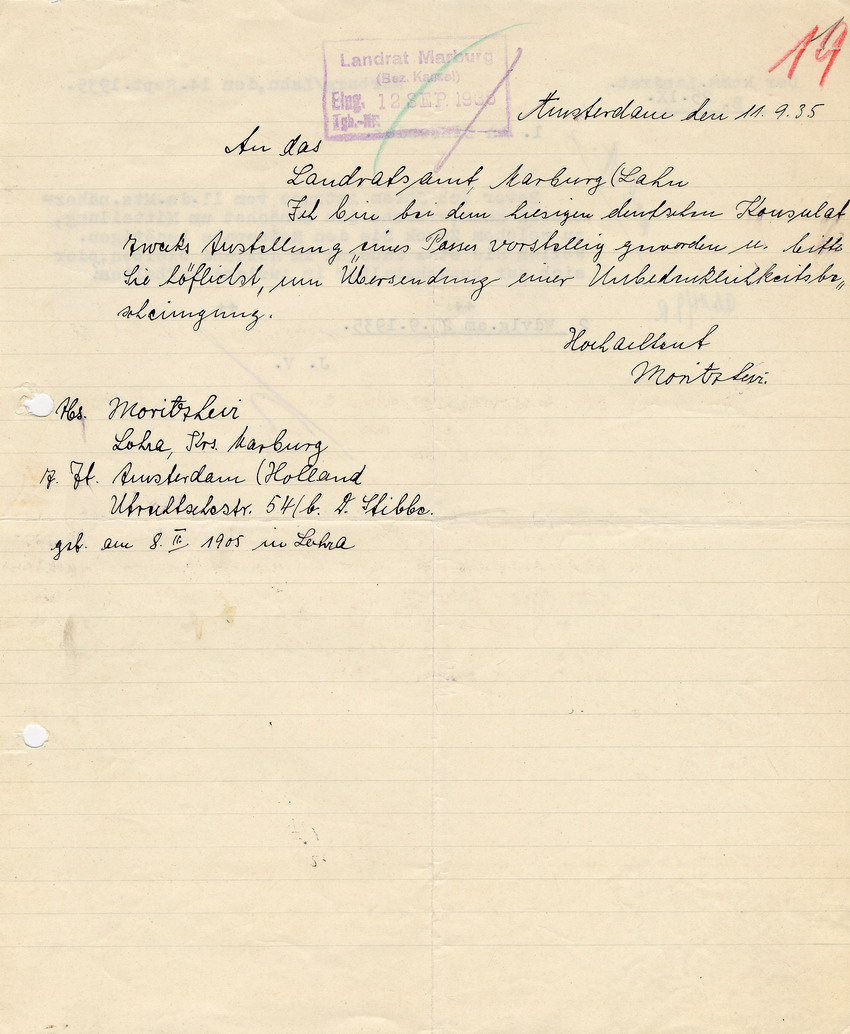 14
Landrat Marburg
(Bez. Kassel)
Eing. 12 SEP. 1935
Tgb.-Nr.
Amsterdam den 11.9.35
An das
Landratsamt, Marburg (Lahn
Ich bin bei dem hiesigen deutschen Konsulat
zwecks Austellung eines Passes vorstellig geworden u. bitte
Sie höflichst, um Übersendung einer Unbedenklichkeitsbe„
scheinigung.
Hochachtent
Moritz Levi.
Moritz Levi
Lohra, Krs. Marburg
z. Zt. Amsterdam (Holland
Utrechtschestr. 54/b. D. Stibbe.
geb. am 8. II. 1905 in Lohra